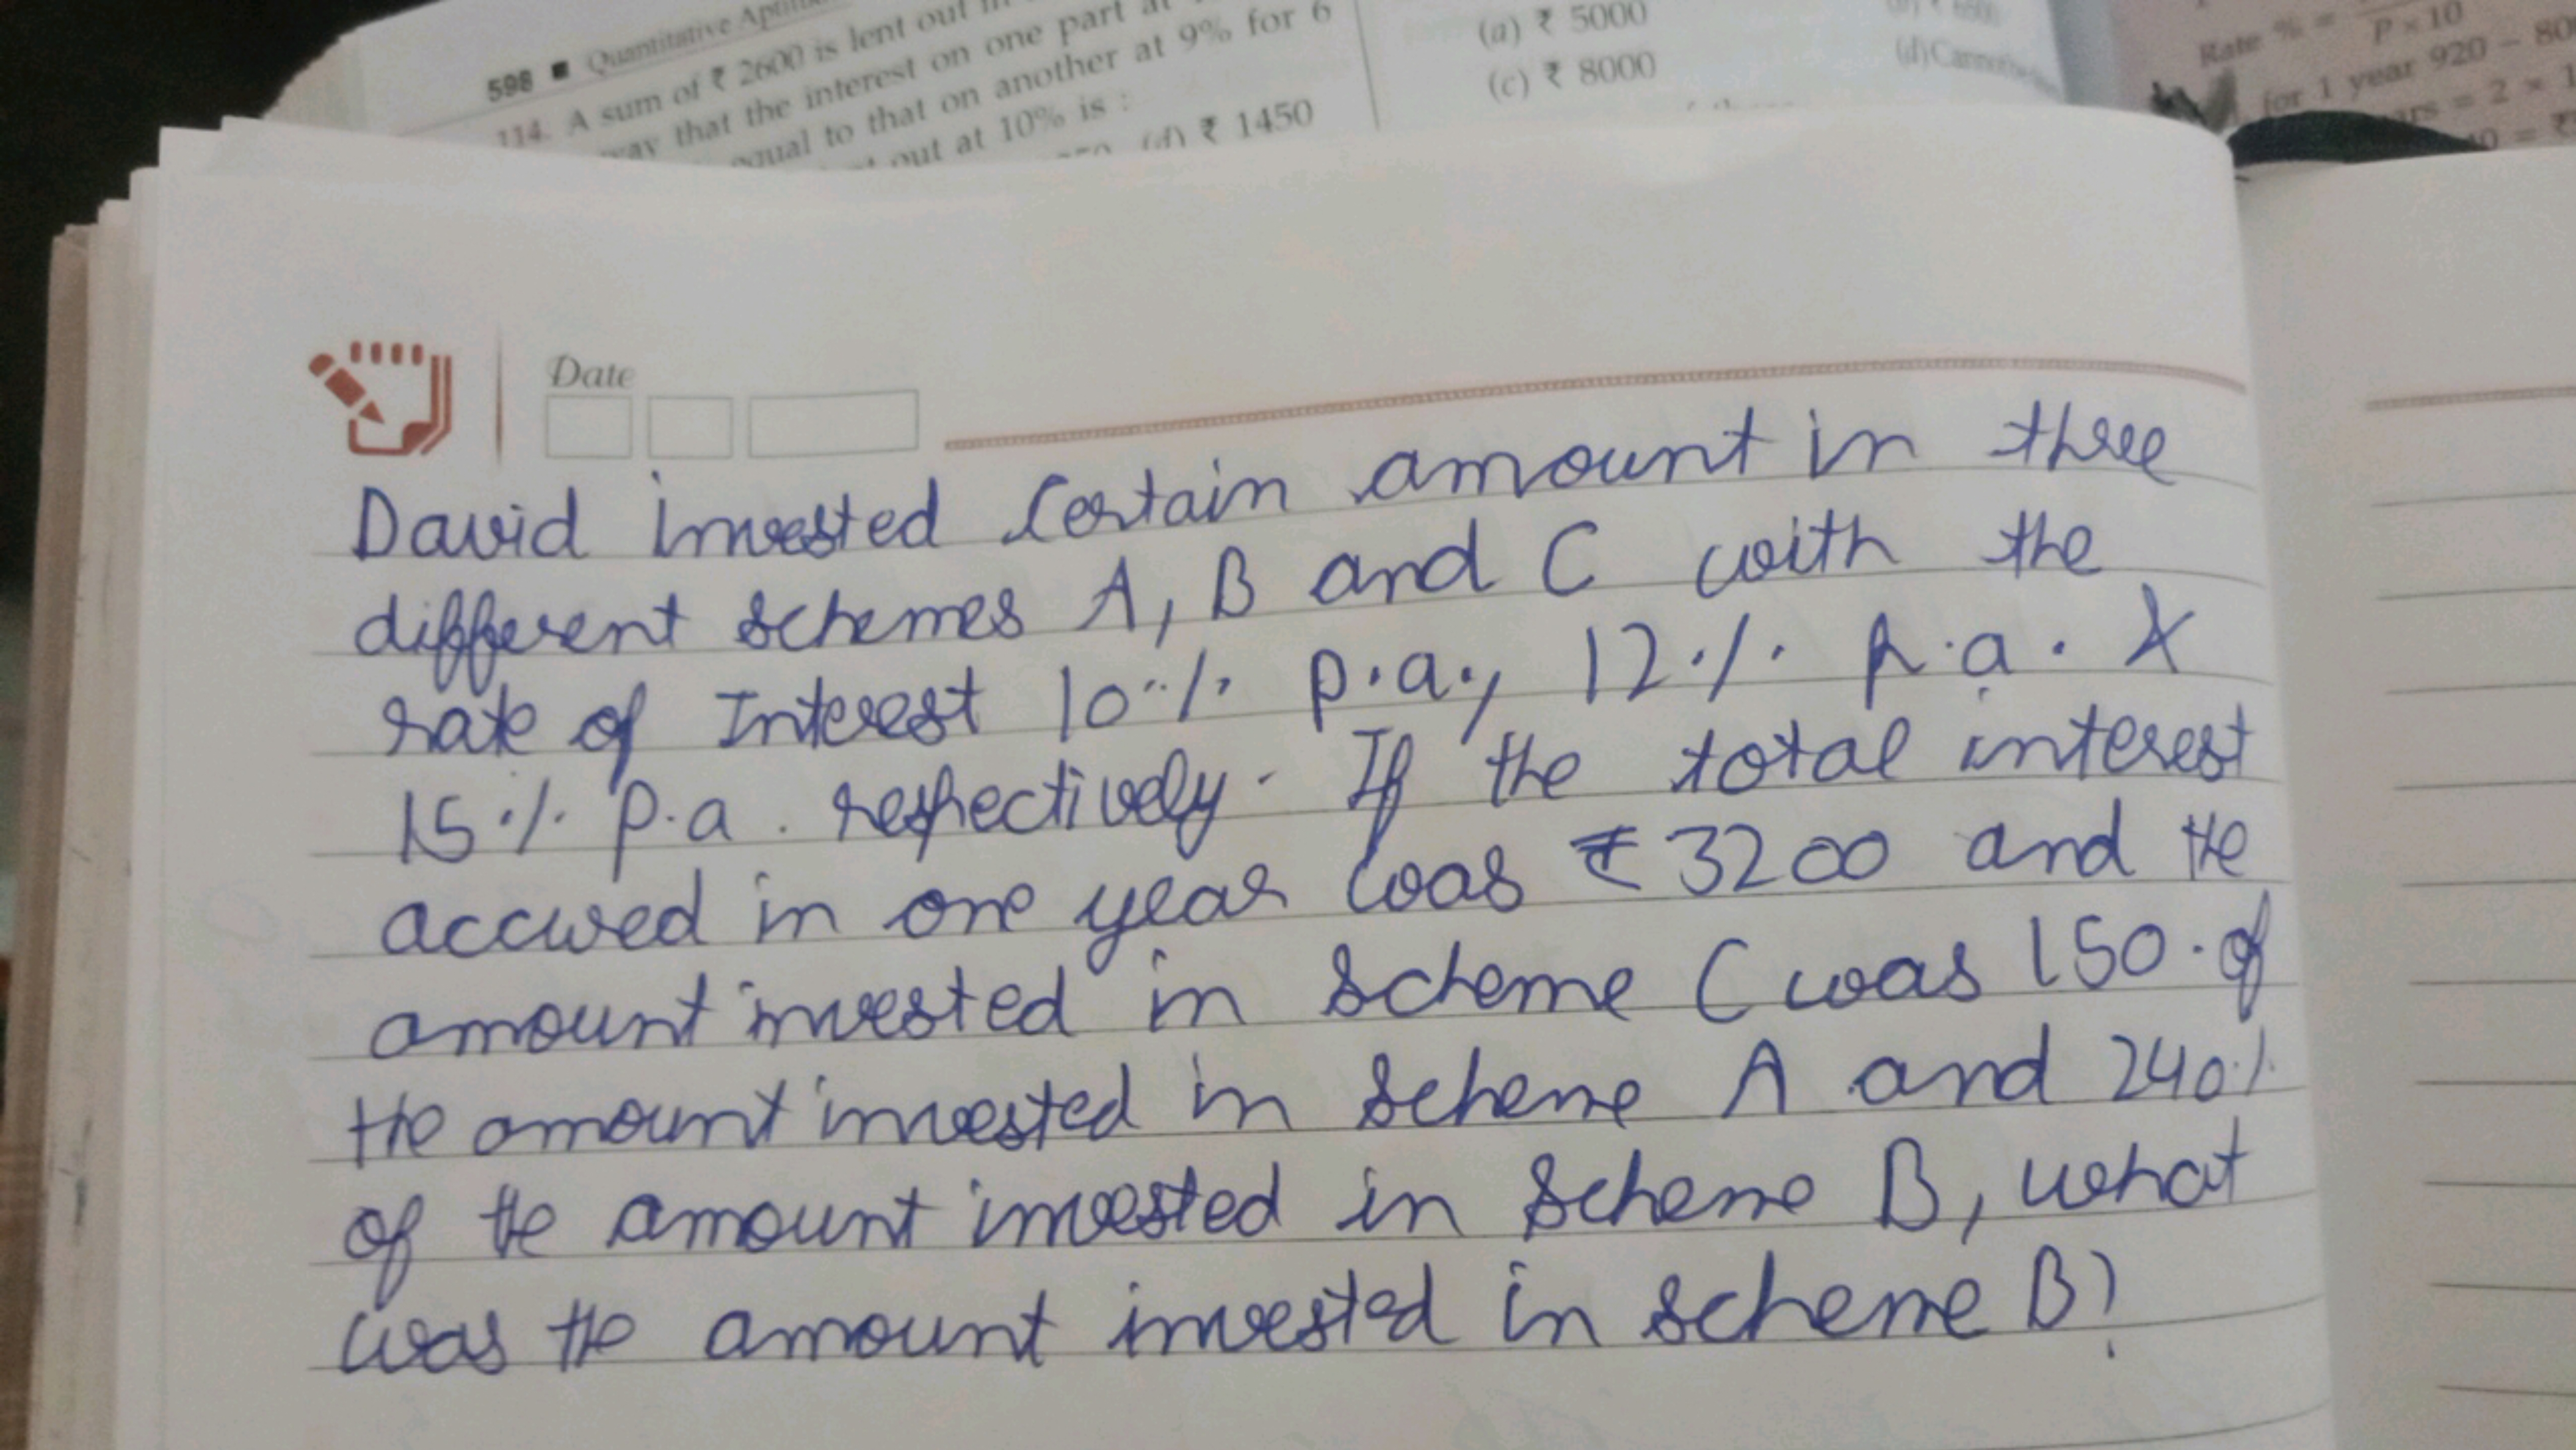 598 ■ Quantitative
114. A sum of ₹ 2600 is lent out
way that the interest on one part at
equal to that on another at 9% for 6
out at 10% is :
(d) ₹ 1450
(a) ₹ 5000
(c) ₹ 8000
Rate % =
P × 10
for 1 year 920 - 80
Date
David invested Certain amount in three
different schemes A, B and C with the
rate of Interest 10% p.a., 12% p.a. &
15% p.a. respectively. If the total interest
accured in one year was ₹ 3200 and the
amount invested in scheme C was 150. of
the amount invested in scheme A and 240%
of the amount invested in scheme B, what
was the amount invested in scheme B?